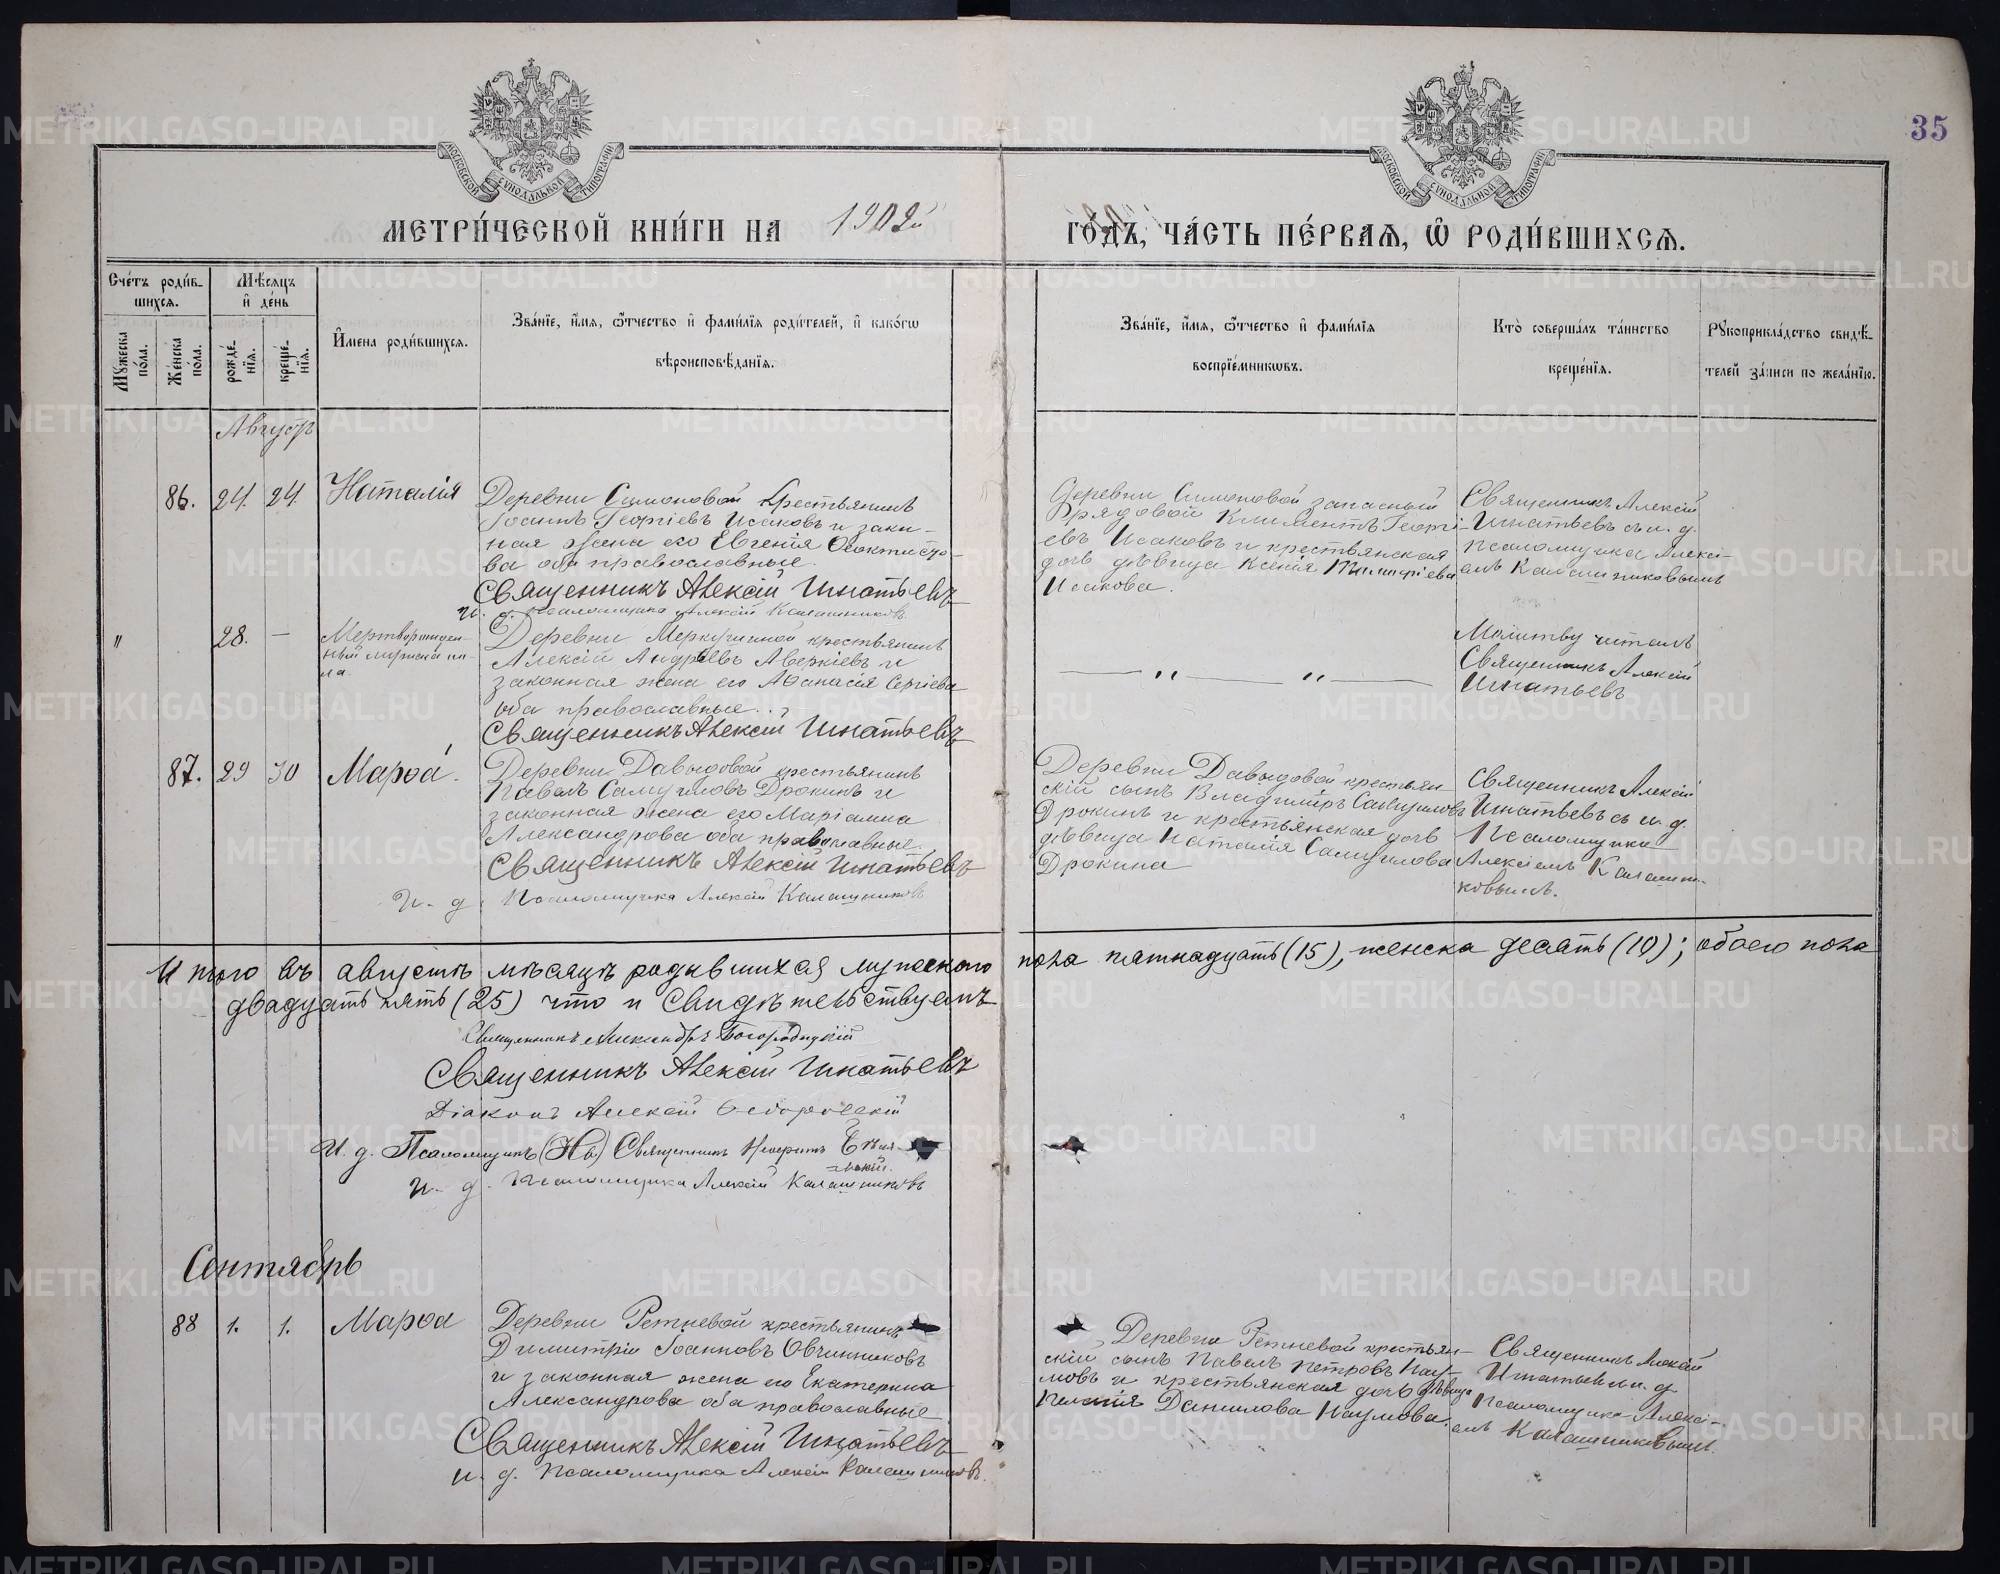 35
МОСКОВСКОЙ СѴНОДАЛЬНОЙ ТИПОГРАФІИ
МОСКОВСКОЙ СѴНОДАЛЬНОЙ ТИПОГРАФІИ
МЕТРИ́ЧЕСКОЙ КНИ́ГИ НА 1902й ГО́ДЪ, ЧА́СТЬ ПЕ́РВАѦ, Ѽ РОДИ́ВШИХСѦ.
Сче́тъ роди́в-
шихсѧ.
Мꙋжеска по́ла.
Же́нска по́ла.
Мѣ́сѧцъ и҆ де́нь
рожде́-
нїѧ.
креще́-
нїѧ.
И҆мена роди́вшихсѧ.
Зва́нїе, и҆́мѧ, ѻ҆́тчество и҆ фами́лїѧ роди́телей, и҆ како́гѡ
вѣроисповѣ́данїѧ.
Зва́нїе, и҆́мѧ, ѻ҆́тчество и҆ фами́лїѧ
воспрїе́мникѡвъ.
Кто̀ соверша́лъ та́инство
креще́нїѧ.
Рꙋкоприкла́дство свидѣ́-
телей за́писи по жела́нїю.
Августъ
86. 24. 24. Наталія
Деревни Симоновой крестьянинъ
Іоаннъ Георгіевъ Исаковъ и закон-
ная жена его Евгенія Ѳеоктисто-
ва оба православные.
Священникъ Алексій Игнатьевъ
И. д. псаломщика Алексій Калашниковъ.
Деревни Симоновой запасный
рядовой Климентъ Георгі-
евъ Исаковъ и крестьянская
дочь дѣвица Ксенія
Исакова.
Священникъ Алексій
Игнатьевъ съ и. д.
псаломщика Алексі-
емъ Калашниковымъ
" 28. — Мертворожден-
ный мужска по-
ла.
Деревни Меркушиной крестьянинъ
Алексій Андреевъ Аверкіевъ и
законная жена его Аѳанасія Сергіева
оба православные.
Священникъ Алексій Игнатьевъ
— " — " —
Молитву читалъ
Священникъ Алексій
Игнатьевъ
87. 29 30 Марѳа.
Деревни Давыдовой крестьянинъ
Павелъ Самуиловъ Дрокинъ и
законная жена его Маріамна
Александрова оба православные.
Священникъ Алексій Игнатьевъ
И. д. Псаломщика Алексій Калашниковъ
Деревни Давыдовой крестьян-
скій сынъ Владиміръ Самуиловъ
Дрокинъ и крестьянская дочь
дѣвица Наталія Самуилова
Дрокина
Священникъ Алексій
Игнатьевъ съ и. д.
Псаломщика
Алексіемъ Калашни-
ковымъ.
Итого въ августѣ мѣсяцѣ родившихся мужескаго пола пятнадцать (15), женска десять (10); обоего пола
двадцать пять (25) что и свидѣтельствуемъ
Священникъ Александръ Богородицкій
Священникъ Алексій Игнатьевъ
Діаконъ Алексій
И. д. Псаломщика Священникъ
И. д. Псаломщика Алексій Калашниковъ
Сентябрь
88 1. 1. Марѳа
Деревни Ретневой крестьянинъ
Димитрій Іоанновъ Овчинниковъ
и законная жена его Екатерина
Александрова оба православные
Священникъ Алексій Игнатьевъ
и. д. Псаломщика Алексій Калашниковъ.
Деревни Ретневой крестьян-
скій сынъ Павелъ Петровъ Нау-
мовъ и крестьянская дочь дѣвица
Пелагія Данилова Наумова.
Священникъ Алексій
Игнатьевъ и. д.
Псаломщика Алексі-
емъ Калашниковымъ.
METRIKI.GASO-URAL.RU